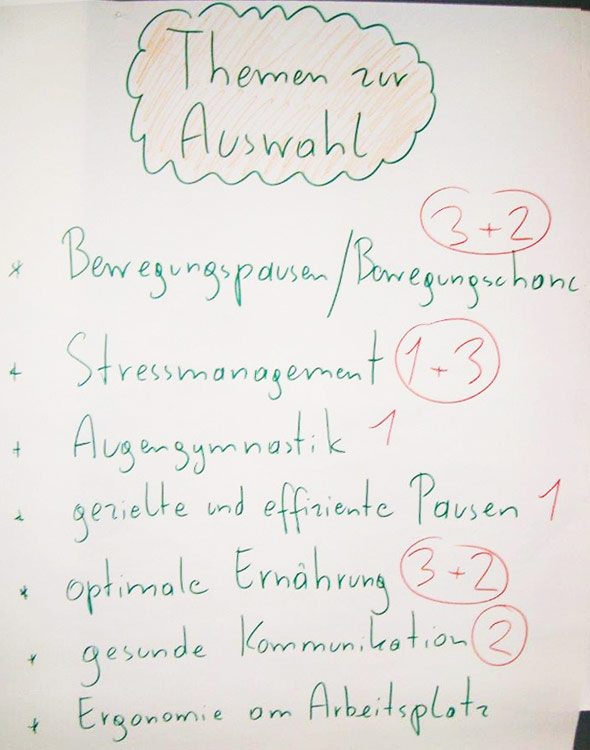 Themen zur
Auswahl
3 + 2
* Bewegungspausen/Bewegungschanc
* Stressmanagement 1 + 3
+ Augengymnastik 1
* gezielte und effiziente Pausen 1
* optimale Ernährung 3 + 2
* gesunde Kommunikation 2
* Ergonomie am Arbeitsplatz